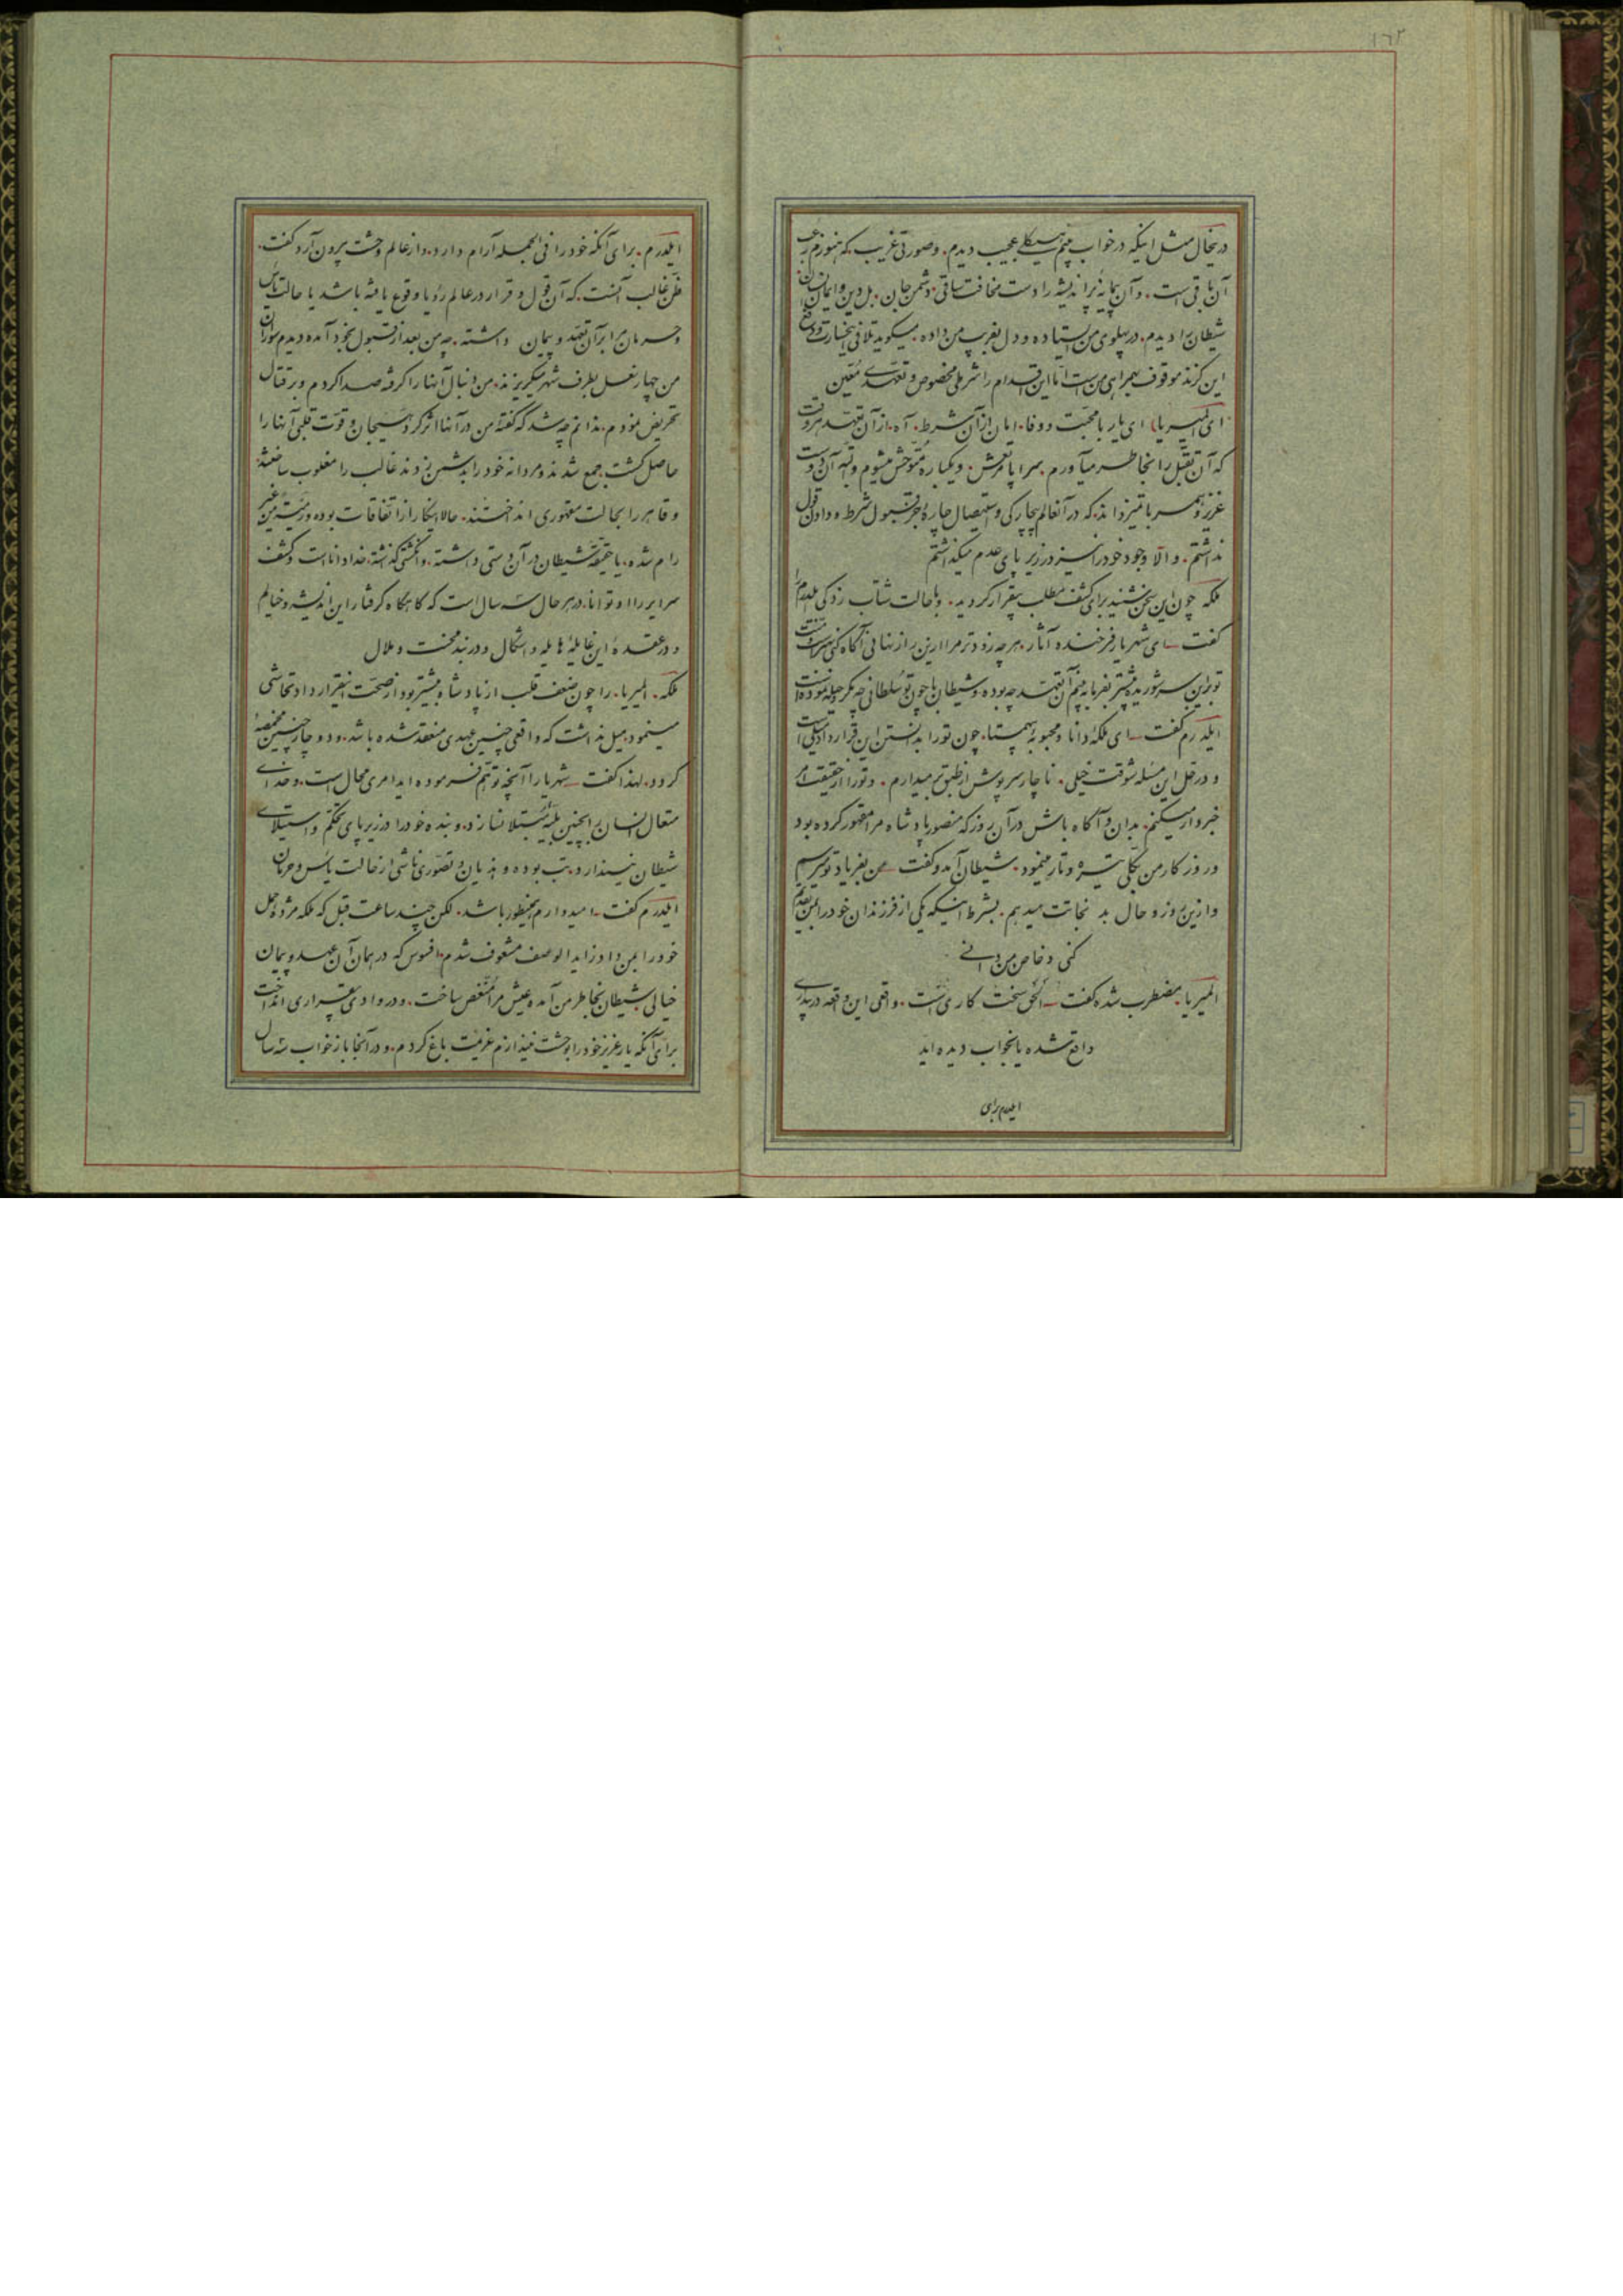 ۱۶۲
درینحال مثل اینکه در خواب بینم هیکلی عجیب دیدم. و صورتی غریب که هنوز رعب
آن باقی است. و آن پیمانه پر اندیشه را دست مخافت ساقی. دشمن جان. بل دین و ایمان
شیطان را دیدم. در پهلوی من ایستاده و دل بفریب من داده. میگوید تلافی خسارت و دفع
این گزند موقوف بهمراهی من است اما این اقدام را شرطی مخصوص و تعهدی معین
ای المیریا. ای یار با محبت و وفا. امان از آن شرط. آه از آن تعهد. هر وقت
که آن تقبل را بخاطر میآورم. سراپا مرتعش. و یکباره متوحش میشوم
عزیز و همسر با تمیز داند. که در آنعالم بیچارگی و استیصال چارهٔ جز قبول شرط و دادن قول
نداشتم. و الا وجود خود را نیز در زیر پای عدم میگذاشتم
ملکه چون این سخن شنید برای کشف مطلب بیقرار گردید. و با حالت شتاب زدگی
گفت ای شهریار فرخنده آثار. هر چه زودتر مرا ازین راز نهانی آگاه کنی
تو براین سر شوریده بیشتر بفرما بینم آن تعهد چه بوده. و شیطان با چون تو سلطانی چه مکر و حیله نموده است
ایلدرم گفت ای ملکهٔ دانا و محبوبهٔ بیهمتا. چون تو را بدانستن این قرارداد میلی است
و در حل این مسئله شوقت خیلی. ناچار سرپوش از طبق بر میدارم. و تو را از حقیقت امر
خبردار میکنم. بدان و آگاه باش در آن روز که منصور پادشاه مرا مقهور کرده بود
و روزگار من بکلی تیره و تار مینمود. شیطان آمد و گفت من بفریاد تو میرسم
و ازین روز و حال بد نجاتت میدهم. بشرط اینکه یکی از فرزندان خود را بمن تقدیم
کنی و خاص من دانی
المیریا. مضطرب شده گفت الحق سخت کاری است. واقعی این واقعه در بیداری
واقع شده یا بخواب دیده اید
ایلدرم برای
ایلدرم. برای آنکه خود را فی الجمله آرام دارد. و از عالم وحشت بیرون آرد گفت.
ظن غالب آنست. که آن قول و قرار در عالم رؤیا وقوع یافته باشد یا حالت یأس
و حرمان مرا بر آن تعهد و پیمان داشته. چه من بعد از قبول بخود آمده دیدم سواران
من چهار نعل بطرف شهر میگریزند. من دنبال آنها را گرفته صدا کردم و بر قتال
تحریض نمودم. ندانم چه شد که گفتهٔ من در آنها اثر کرد و هیجان و قوت قلبی آنها را
حاصل گشت. جمع شدند و مردانه خود را بدشمن زدند غالب را مغلوب ساختند.
و قاهر را بحالت مقهوری انداختند. حالا اینکار از اتفاقات بوده
رام شده، یا حقیقةً شیطان در آن دستی داشته. و انگشتی گذاشته. خدا داناست و کشف
سرایر را او توانا. در هر حال سه سال است که گاه گاه گرفتار این اندیشه و خیالم
و در عقدهٔ این غایلهٔ هایله و اشکال و در بند محنت و ملال
ملکه. المیریا. را چون ضعف قلب از پادشاه بیشتر بود از صحت اینقرارداد تحاشی
مینمود. میل نداشت که واقعی چنین عهدی منعقد شده باشد. و دوچار چنین مخمصهٔ
گردد. لهذا گفت شهریارا آنچه توهم فرموده اید امری محال است. و خدای
متعال انسان را بچنین بلیهٔ مبتلا نسازد. و بنده خود را در زیر پای تحکم و استیلای
شیطان نیندازد. تب بوده و هذیان و تصوری ناشی از حالت یأس و حرمان
ایلدرم گفت امیدوارم همینطور باشد. لکن چند ساعت قبل که ملکه مژدهٔ حمل
خود را بمن داد زاید الوصف مشعوف شدم. افسوس که در همان آن عهد و پیمان
خیالی بشیطان بخاطر من آمده عیش مرا منغص ساخت. و در وادی بیقراری انداخت
برای آنکه یار عزیز خود را بوحشت نیندازم عزیمت باغ کردم. و در آنجا باز خواب سه سال